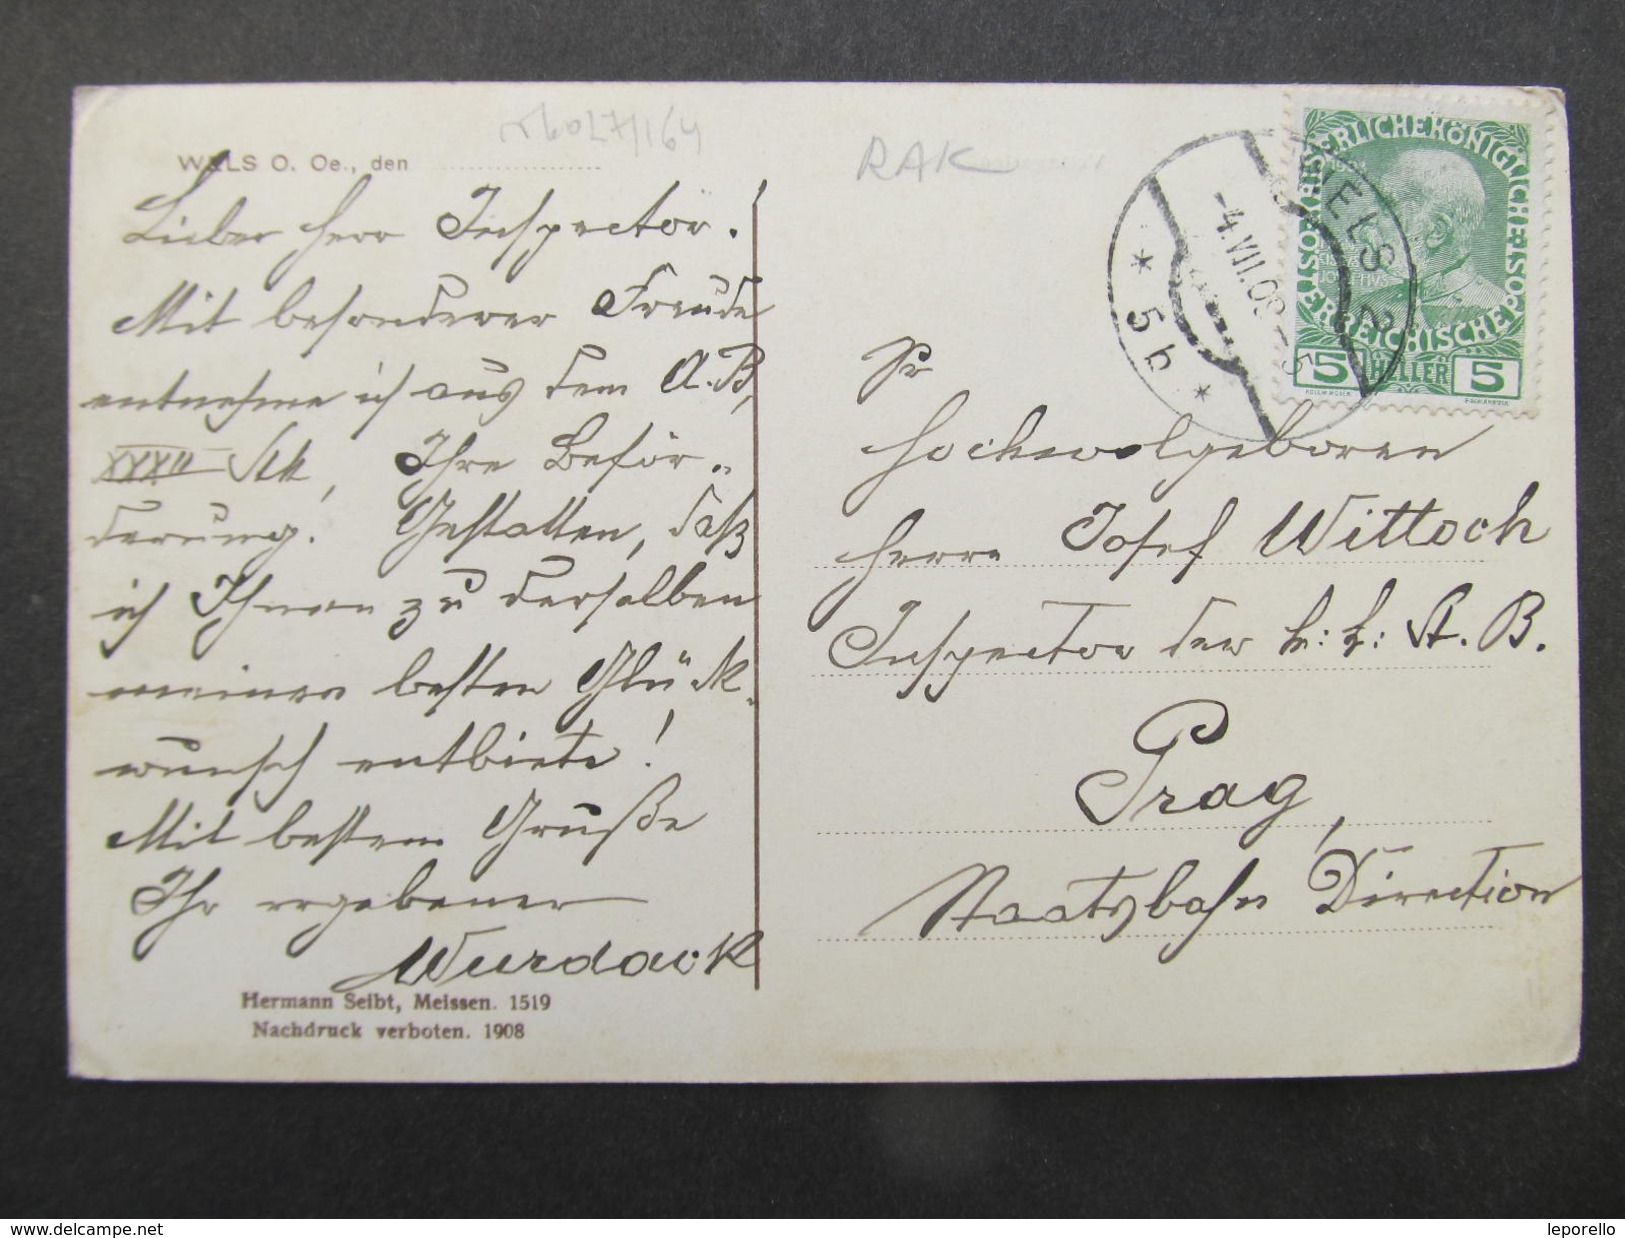 WELS O. Oe., den
RAK
Lieber Herr Inspector.
Mit besonderer Freude
entnehme ich aus dem A.B,
XXXII Stk, Ihre Beför-
derung! Gestatten, daß
ich Ihnen zu derselben
meinen besten Glück-
wunsch entbiete!
Mit bestem Gruße
Ihr ergebener
Wurdack
Hermann Seibt, Meissen. 1519
Nachdruck verboten. 1908
WELS 2
-4.VII.08-5
* 5b *
KAISERLICHE KÖNIGLICHE ÖSTERREICHISCHE POST
5 HELLER 5
Sr
Hochwolgeboren
Herrn Josef Wittoch
Inspector der k: k: St. B.
Prag,
Staatsbahn Direction
www.delcampe.net
leporello